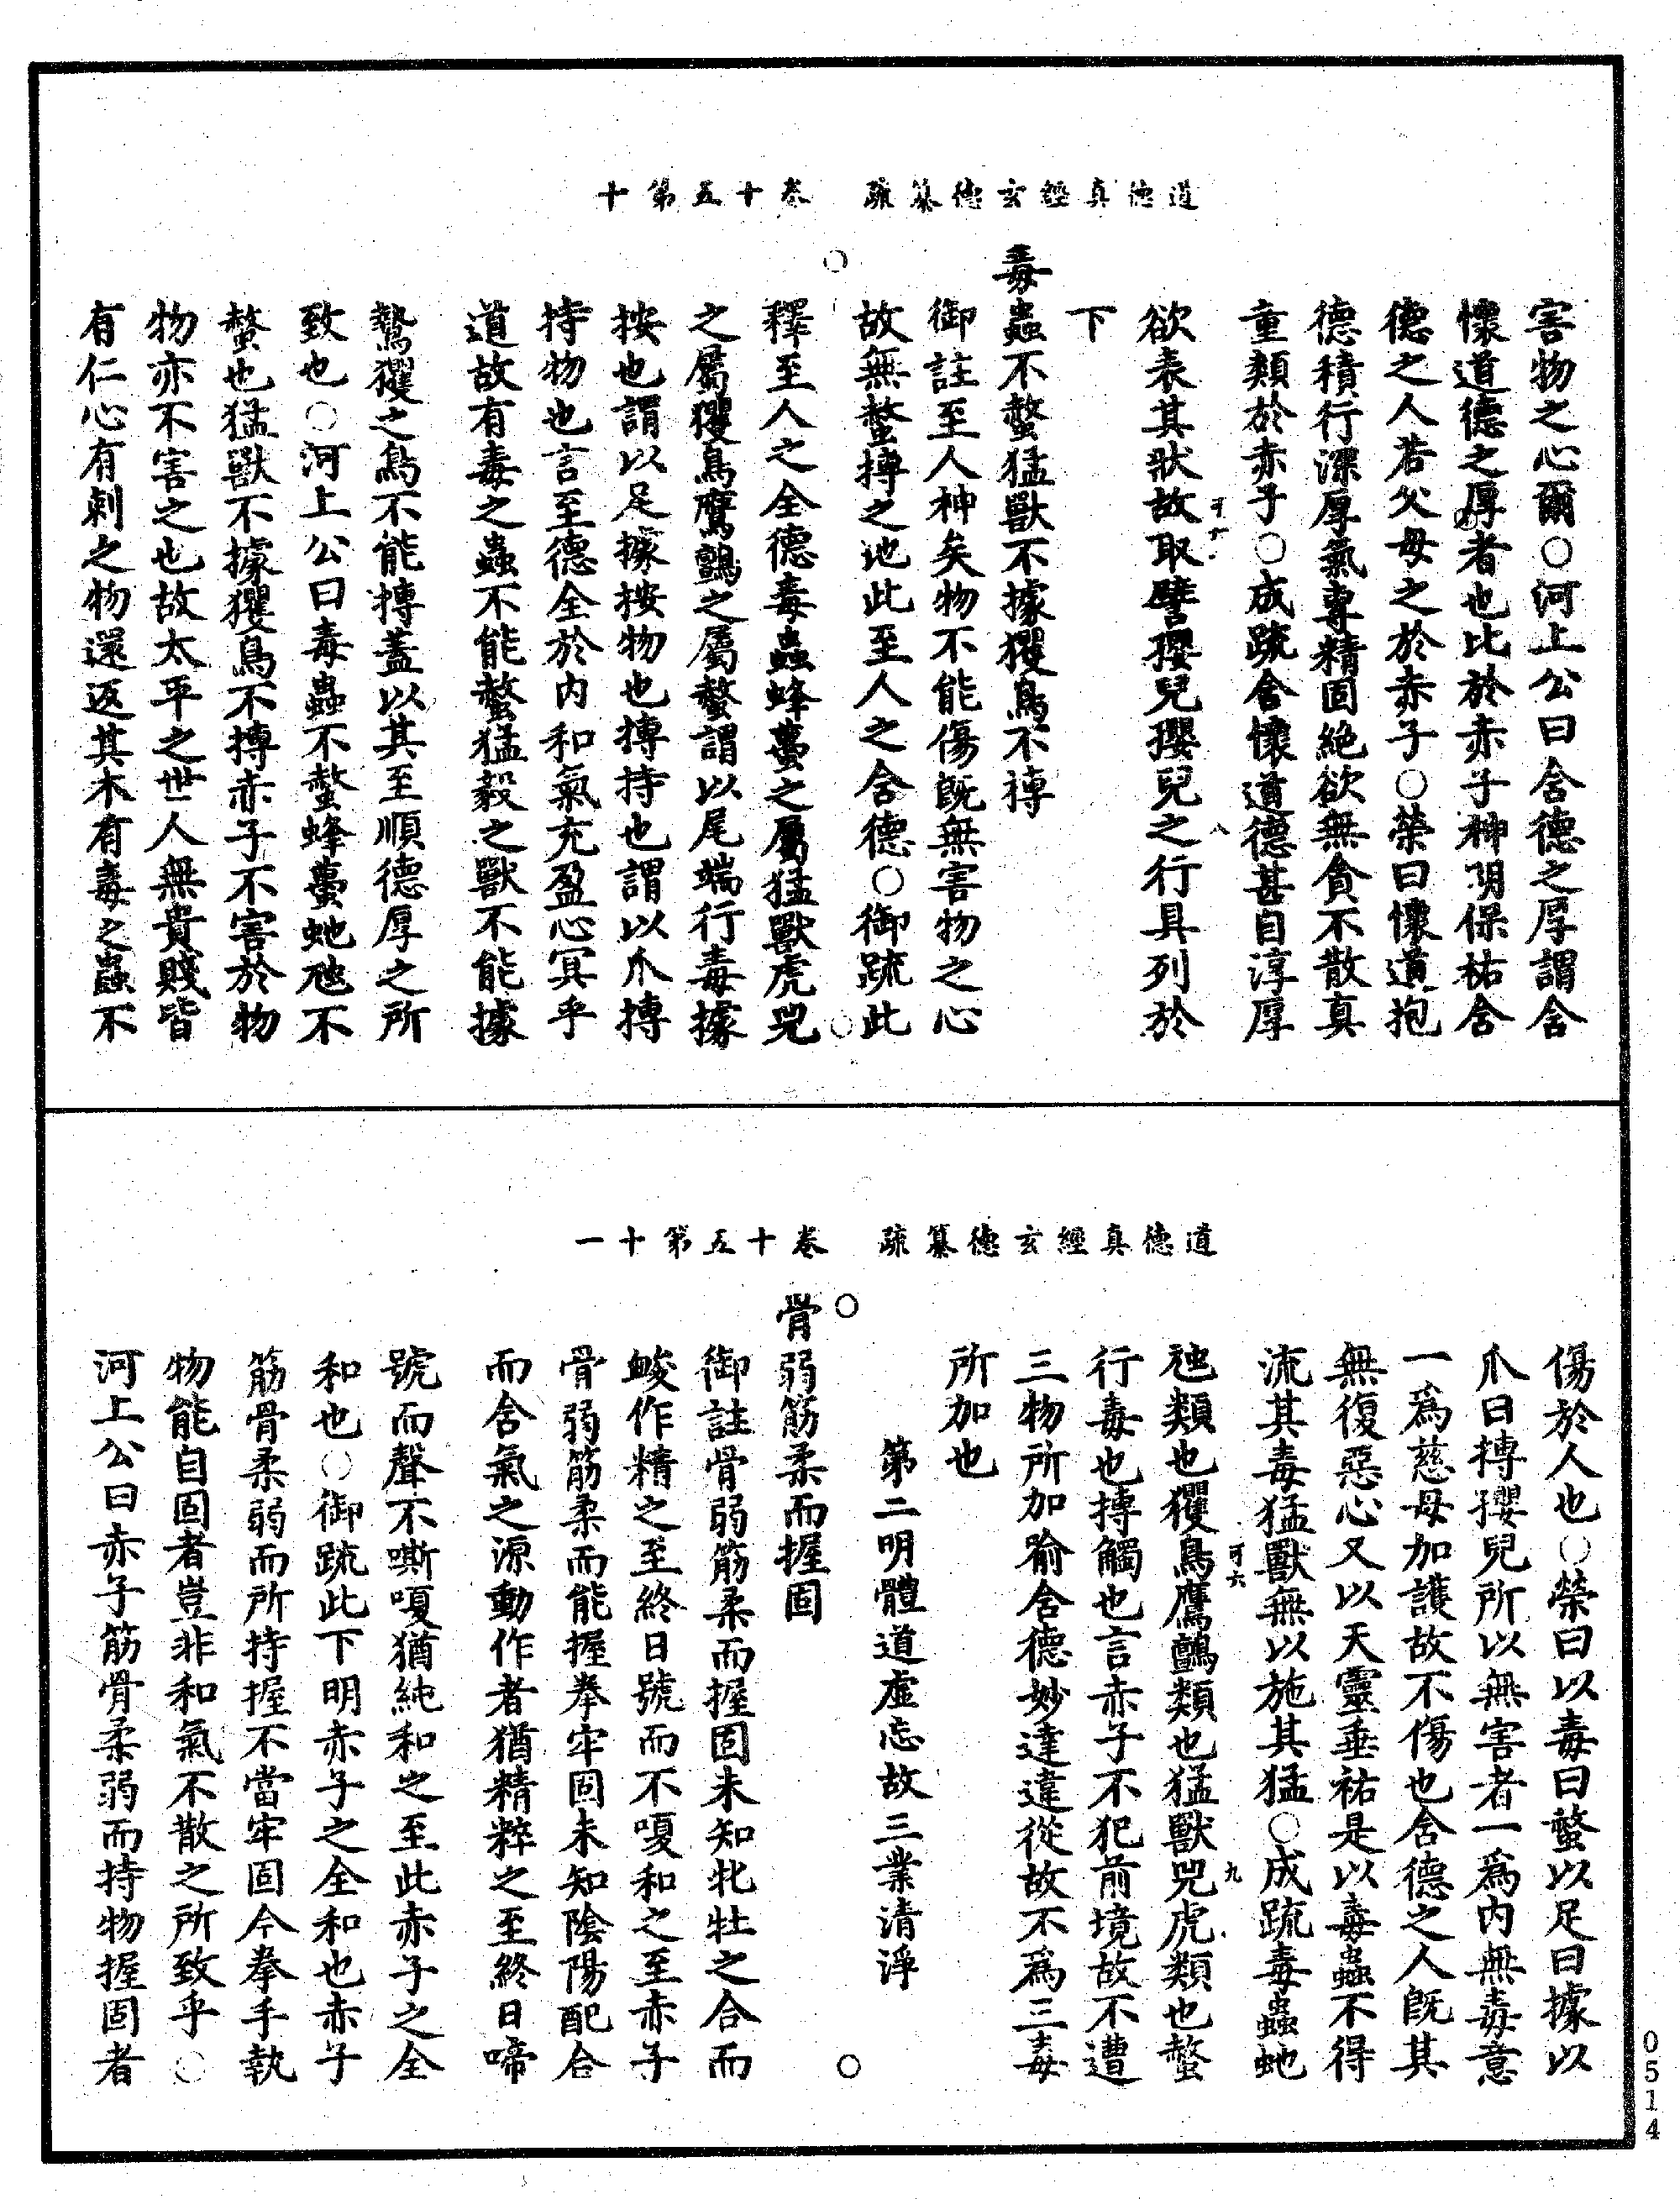 道德真經玄德纂疏　卷十五第十
害物之心爾○河上公曰含德之厚謂含
懷道德之厚者也比於赤子神明保祐含
德之人若父母之於赤子○榮曰懷道抱
德積行深厚氣專精固絕欲無貪不散真
童類於赤子○成疏含懷道德甚自淳厚
可十
八
欲表其狀故取譬瓔兒瓔兒之行具列於
下
毒蟲不螫猛獸不據玃鳥不搏
御註至人神矣物不能傷旣無害物之心
故無螫搏之地此至人之含德○御疏此
釋至人之全德毒蟲蜂蠆之屬猛獸虎兕
之屬玃鳥鷹鸇之屬螫謂以尾端行毒據
按也謂以足據按物也搏持也謂以爪搏
持物也言至德全於內和氣充盈心冥乎
道故有毒之蟲不能螫猛毅之獸不能據
鷙玃之鳥不能搏蓋以其至順德厚之所
致也○河上公曰毒蟲不螫蜂蠆虵虺不
螫也猛獸不據玃鳥不搏赤子不害於物
物亦不害之也故太平之世人無貴賤皆
有仁心有刺之物還返其木有毒之蟲不
道德真經玄德纂疏　卷十五第十一
傷於人也○榮曰以毒曰螫以足曰據以
爪曰搏瓔兒所以無害者一爲內無毒意
一爲慈母加護故不傷也含德之人旣其
無復惡心又以天靈垂祐是以毒蟲不得
流其毒猛獸無以施其猛○成疏毒蟲虵
可六
九
虺類也玃鳥鷹鸇類也猛獸兕虎類也螫
行毒也搏觸也言赤子不犯前境故不遭
三物所加喻含德妙達違從故不爲三毒
所加也
第二明體道虛忘故三業清淨
骨弱筋柔而握固
御註骨弱筋柔而握固未知牝牡之合而
䘒作精之至終日號而不嗄和之至赤子
骨弱筋柔而能握拳牢固未知陰陽配合
而含氣之源動作者猶精粹之至終日啼
號而聲不嘶嗄猶純和之至此赤子之全
和也○御疏此下明赤子之全和也赤子
筋骨柔弱而所持握不當牢固今拳手執
物能自固者豈非和氣不散之所致乎○
河上公曰赤子筋骨柔弱而持物握固者
0514